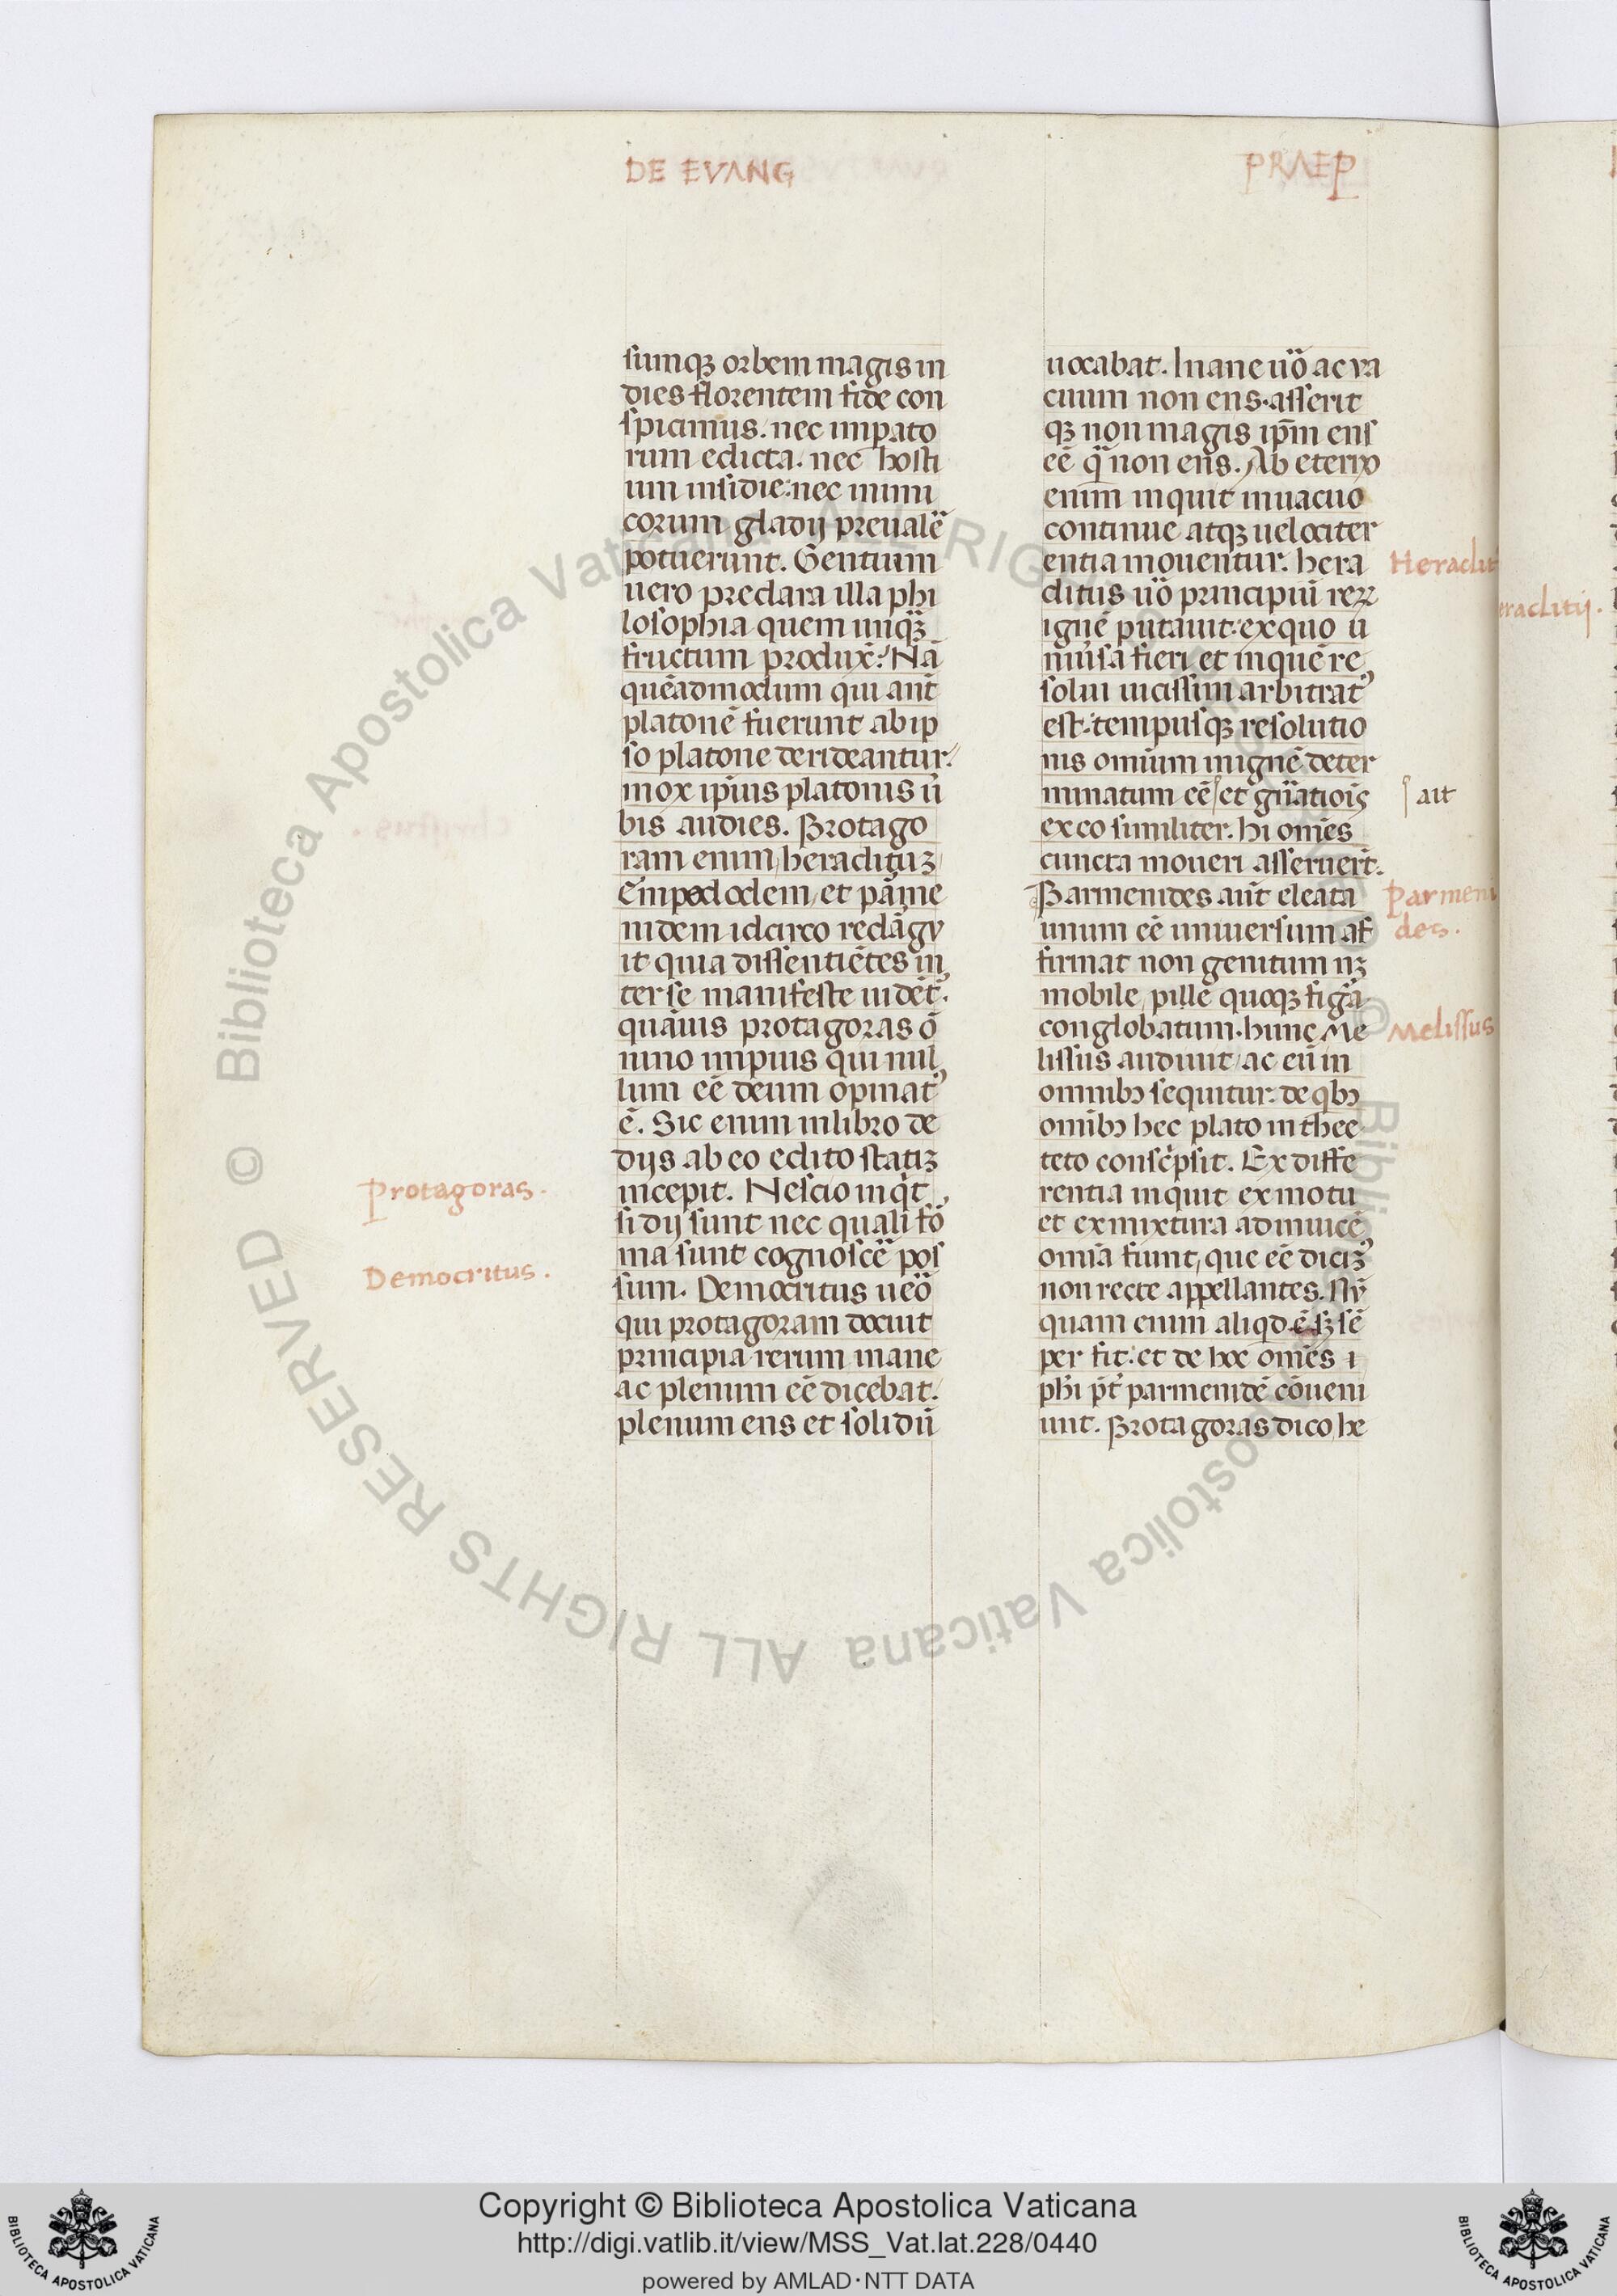 DE EVANG
PRAEP
sumqȝ orbem magis in
dies florentem fide con
spicimus. nec impato
rum edicta. nec hosti
um insidie: nec inimi
corum gladij preualē
potuerunt. Gentium
uero preclara illa phi
losophia quem unqȝ
fructum produx̄? Nā
quēadmodum qui ant̄
platonē fuerunt ab ip
so platone derideantur:
mox ipius platonis ū
bis audies. Protago
ram enim heraclituȝ
Empedoclem et pāme
nidem idcirco redāgu
it quia dissentiētes in
ter se manifeste uidēt᷒.
quāuis protagoras ō
nino impius qui nul
lum eē deum opinat᷒
ē. Sic enim in libro de
dijs ab eo edito statiȝ
incepit. Nescio inqt
si dij sunt nec quali fō
ma sunt cognoscē pos
sum. Democritus ueō
qui protagoram docuit
principia rerum inane
ac plenum eē dicebat.
plenum ens et solidū
Protagoras.
Democritus.
uocabat. Inane uō ac va
cuum non ens. asserit
qȝ non magis ipm̄ ens
eē q̄ non ens. Ab eterno
enim inquit in uacuo
continue atqȝ uelociter
entia mouentur. hera
clitus uō principiū reꝝ
ignē putauit: ex quo ū
niūsa fieri et in quē re
solui uicissim arbitrat᷒
est: tempusqȝ resolutio
nis omium in ignē deter
minatum eē et gn̄atiois
ex eo similiter. hi omēs
cuncta moueri asseruert̄.
Parmenides aūt eleata
unum eē uniuersum af
firmat non genitum nȝ
mobile, pille quoqȝ figā
conglobatum. hunc Me
lissus audiuit ac eū in
omnibꝯ sequitur: de qbꝯ
omibꝯ hec plato in thee
teto consc̄psit. Ex diffe
rentia inquit ex motu
et ex mixtura ad inuicē
omia fiunt, que eē diciȝ᷒
non recte appellantes. Nū
quam enim aliqd ē sȝ sē
per fit: et de hoc omēs i
phi p̄t parmenidē cōueni
unt. Protagoras dico he
Heraclit
ait
Parmeni
des.
Melissus
eraclitij.
© Biblioteca Apostolica Vaticana ALL RIGHTS RESERVED
Copyright © Biblioteca Apostolica Vaticana
http://digi.vatlib.it/view/MSS_Vat.lat.228/0440
powered by AMLAD·NTT DATA
BIBLIOTECA APOSTOLICA VATICANA
BIBLIOTECA APOSTOLICA VATICANA